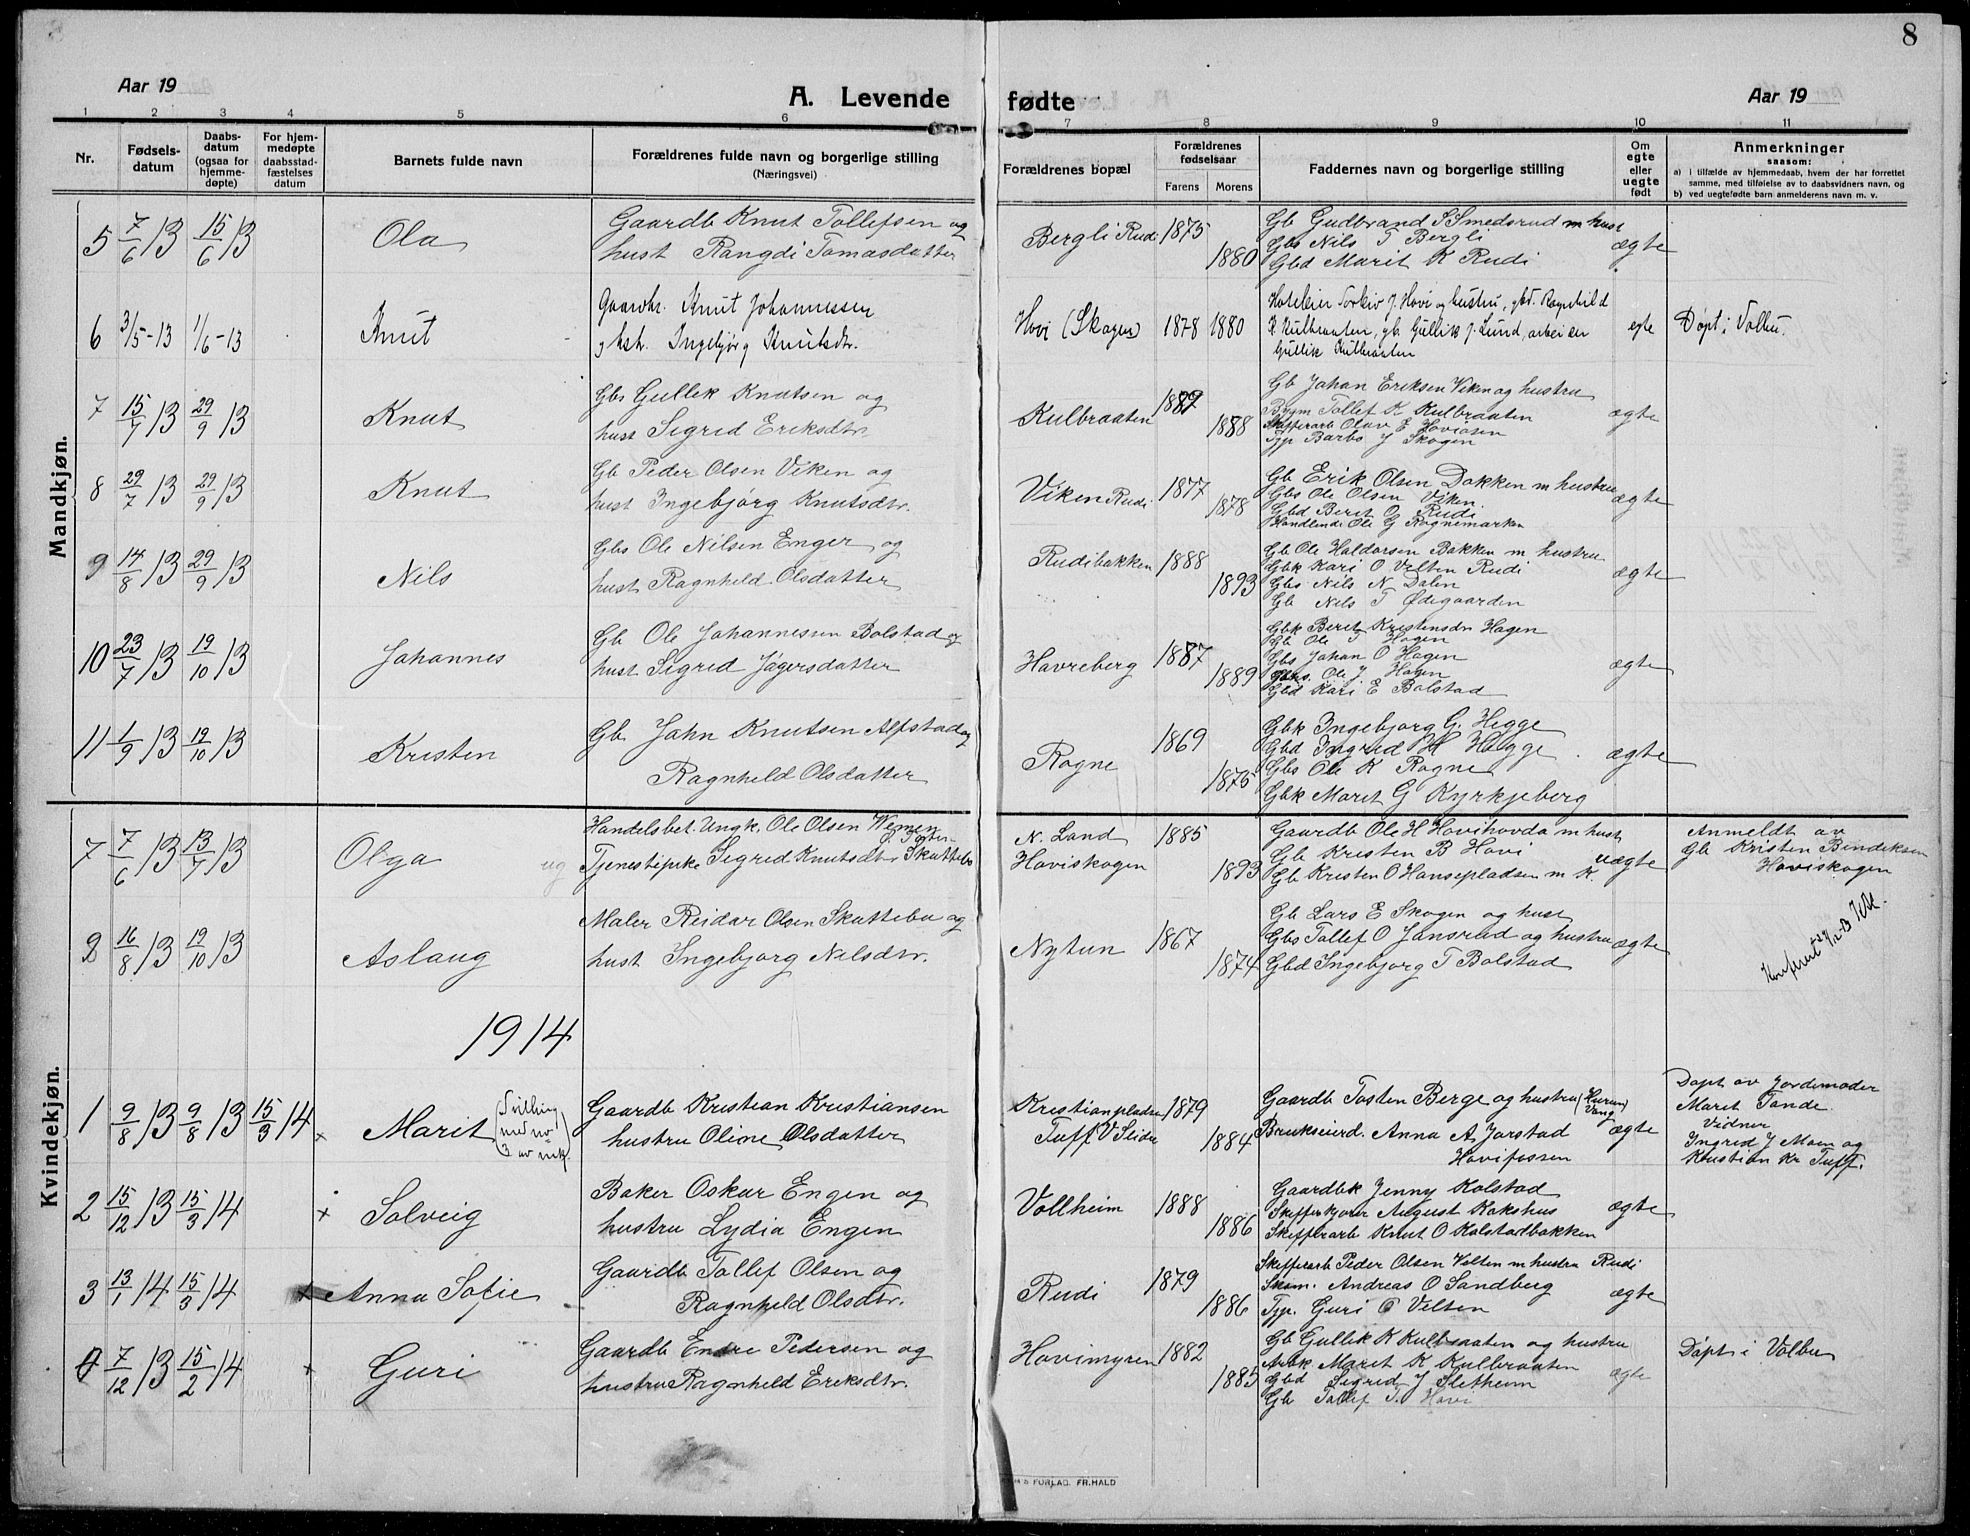 8
Aar 19
A. Levende fødte
Aar 19
1 2 3 4 5 6 7 8 9 10 11
Nr.
Fødsels-
datum
Daabs-
datum
(ogsaa for
hjemme-
døpte)
For hjem-
medøpte
daabsstad-
fæstelses
datum
Barnets fulde navn
Forældrenes fulde navn og borgerlige stilling
(Næringsvei)
Forældrenes bopæl
Forældrenes
fødselsaar
Farens Morens
Faddernes navn og borgerlige stilling
Om
egte
eller
uegte
født
Anmerkninger
saasom:
a) i tilfælde av hjemmedaab, hvem der har forrettet
samme, med tilføielse av to daabsvidners navn, og
b) ved uegtefødte barn anmelderens navn m. v.
Mandkjøn.
5 7/6 13 15/6 13 Ola
Gaardb Knut Tollefsen og
hust Rangdi Tomasdatter
Bergli Rudi 1875 1880
Gb Gudbrand S Smedsrud m hust
Gbs Nils T Bergli
Gbd Marit K Rudi
ægte
6 3/5-13 1/6-13 Knut
Gaardbr. Knut Johannessen
og hstr. Ingebjørg Knutsdtr.
Hovi (Skogen) 1878 1880
Hoteleier Torkiv J. Hovi og hustru, gbd. Ragnhild
K Kulbraaten, gb. Gullik J. Lund, arbeider
Gullik Kulbraaten
egte
Døpt i Volbu.
7 15/7 13 29/9 13 Knut
Gbs Gullek Knutsen og
hust Sigrid Eriksdtr.
Kulbraaten 1889 1888
Gb Johan Eriksen Viken og hustru
Bygm Tollef K Kulbraaten
Skifferarb Olav E Hoviosen
Tjp Barbo J Skogen
ægte
8 29/7 13 29/9 13 Knut
Gb Peder Olsen Viken og
hust Ingebjørg Knutsdtr.
Viken Rudi 1877 1878
Gb Erik Olsen Dokken m hustru
Gbs Ole Olsen Viken
Gbd Berit O Rudi
Handlende Ole G Rognemarken
ægte
9 14/8 13 29/9 13 Nils
Gbs Ole Nilsen Enger og
hust Ragnheld Olsdatter
Rudibakken 1888 1893
Gb Ole Haldorsen Bakken m hustru
Gbk Kari O Velten Rudi
Gbs Nils N Dalen
Gb Nils T Ødegaarden
ægte
10 23/7 13 19/10 13 Johannes
Gb Ole Johannessen Bolstad og
hust Sigrid Jøgersdatter
Havreberg 1887 1889
Gbk Berit Kristensdr Hagen
Gb Ole T Hagen
Gbs Johan O Hagen
Gbs. Ole J Hagen
Gbd Kari E Bolstad
ægte
11 1/9 13 19/10 13 Kristen
Gb John Knutsen Alfstad og
Ragnheld Olsdatter
Rogne 1869 1875
Gbk Ingebjørg G. Hegge
Gbd Ingrid H Hegge
Gbs Ole K Rogne
Gbk Marit G Kyrkjeberg
ægte
Kvindekjøn.
7 7/6 13 13/7 13 Olga
Handelsbet. Ungk. Ole Olsen Wemen
ug Tjenestepike Sigrid Knutsdtr Skattebo
N. Land
Hoviskogen 1885 1893
Gaardb Ole H Hovihovda m hust
Gb Kristen B Hovi
Gb Kristen O Hansepladsen m K.
uægte
Anmeldt av
Gb Kristen Bendiksen
Hoviskogen
8 16/8 13 19/10 13 Aslaug
Maler Reidar Olsen Skattebu og
hust Ingebjørg Nilsdtr.
Nytun 1867 1874
Gb Lars E Skogen og hust
Gbs Tollef O Jansrud og hustru
Gbd Ingebjørg T Bolstad
ægte
1914
1 9/8 13 9/8 13 15/3 14 x Marit (Tvilling
med no
Gaardb Kristian Kristiansen
hustru Oline Olsdatter
Kristianpladsen
Tuff V Slidre 1879 1884
Gaardb Tosten Berge og hustru (Hurum
Vang)
Brukseierd. Anna A Jarstad
Hovifossen
ægte
Døpt av Jordemoder
Marit Tande.
Vidner
Ingrid J Moen og
Kristian Kr Tuff.
2 15/12 13 15/3 14 x Solveig
Baker Oskar Engen og
hustru Lydia Engen
Vollheim 1888 1886
Gaardbk Jenny Kolstad
August Kokshus
Skifferarb Knut O Kolstadbakken
ægte
3 13/1 14 15/3 14 x Anna Sofie
Gaardb Tollef Olsen og
Ragnheld Olsdtr.
Rudi 1879 1886
Skifferarb Peder Olsen Velten m hustru Rudi
Skom. Andreas O Sandberg
Tjp. Guri O Velten
ægte
7/12 13 15/2 14 x Guri
Gaardb Endre Pedersen og
hustru Ragnheld Eriksdtr.
Hovimyren 1882 1885
Gb Gullik K Kulbraaten og hustru
Marit K Kulbraaten
Gbd Sigrid J Sletheim
Gb Tollef T. Hovi
ægte
Døpt i Volbu
FORLAG. FR. HALD